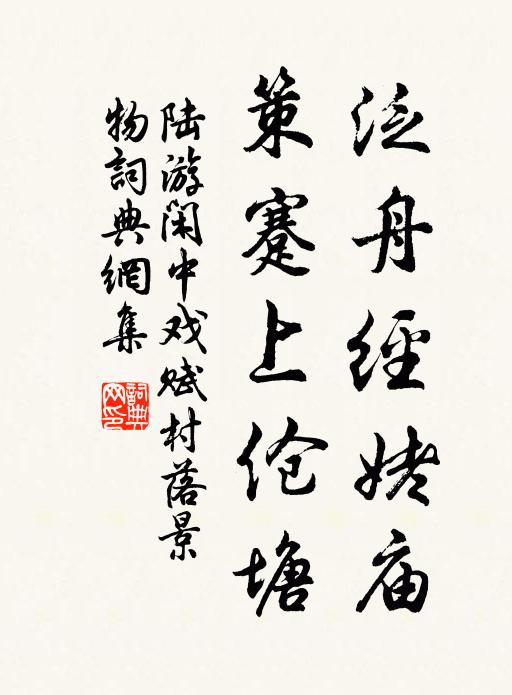 泛舟經姥庙
策蹇上伧塘
陆游闲中戏赋村落景
物詞典網集
詞典
网印